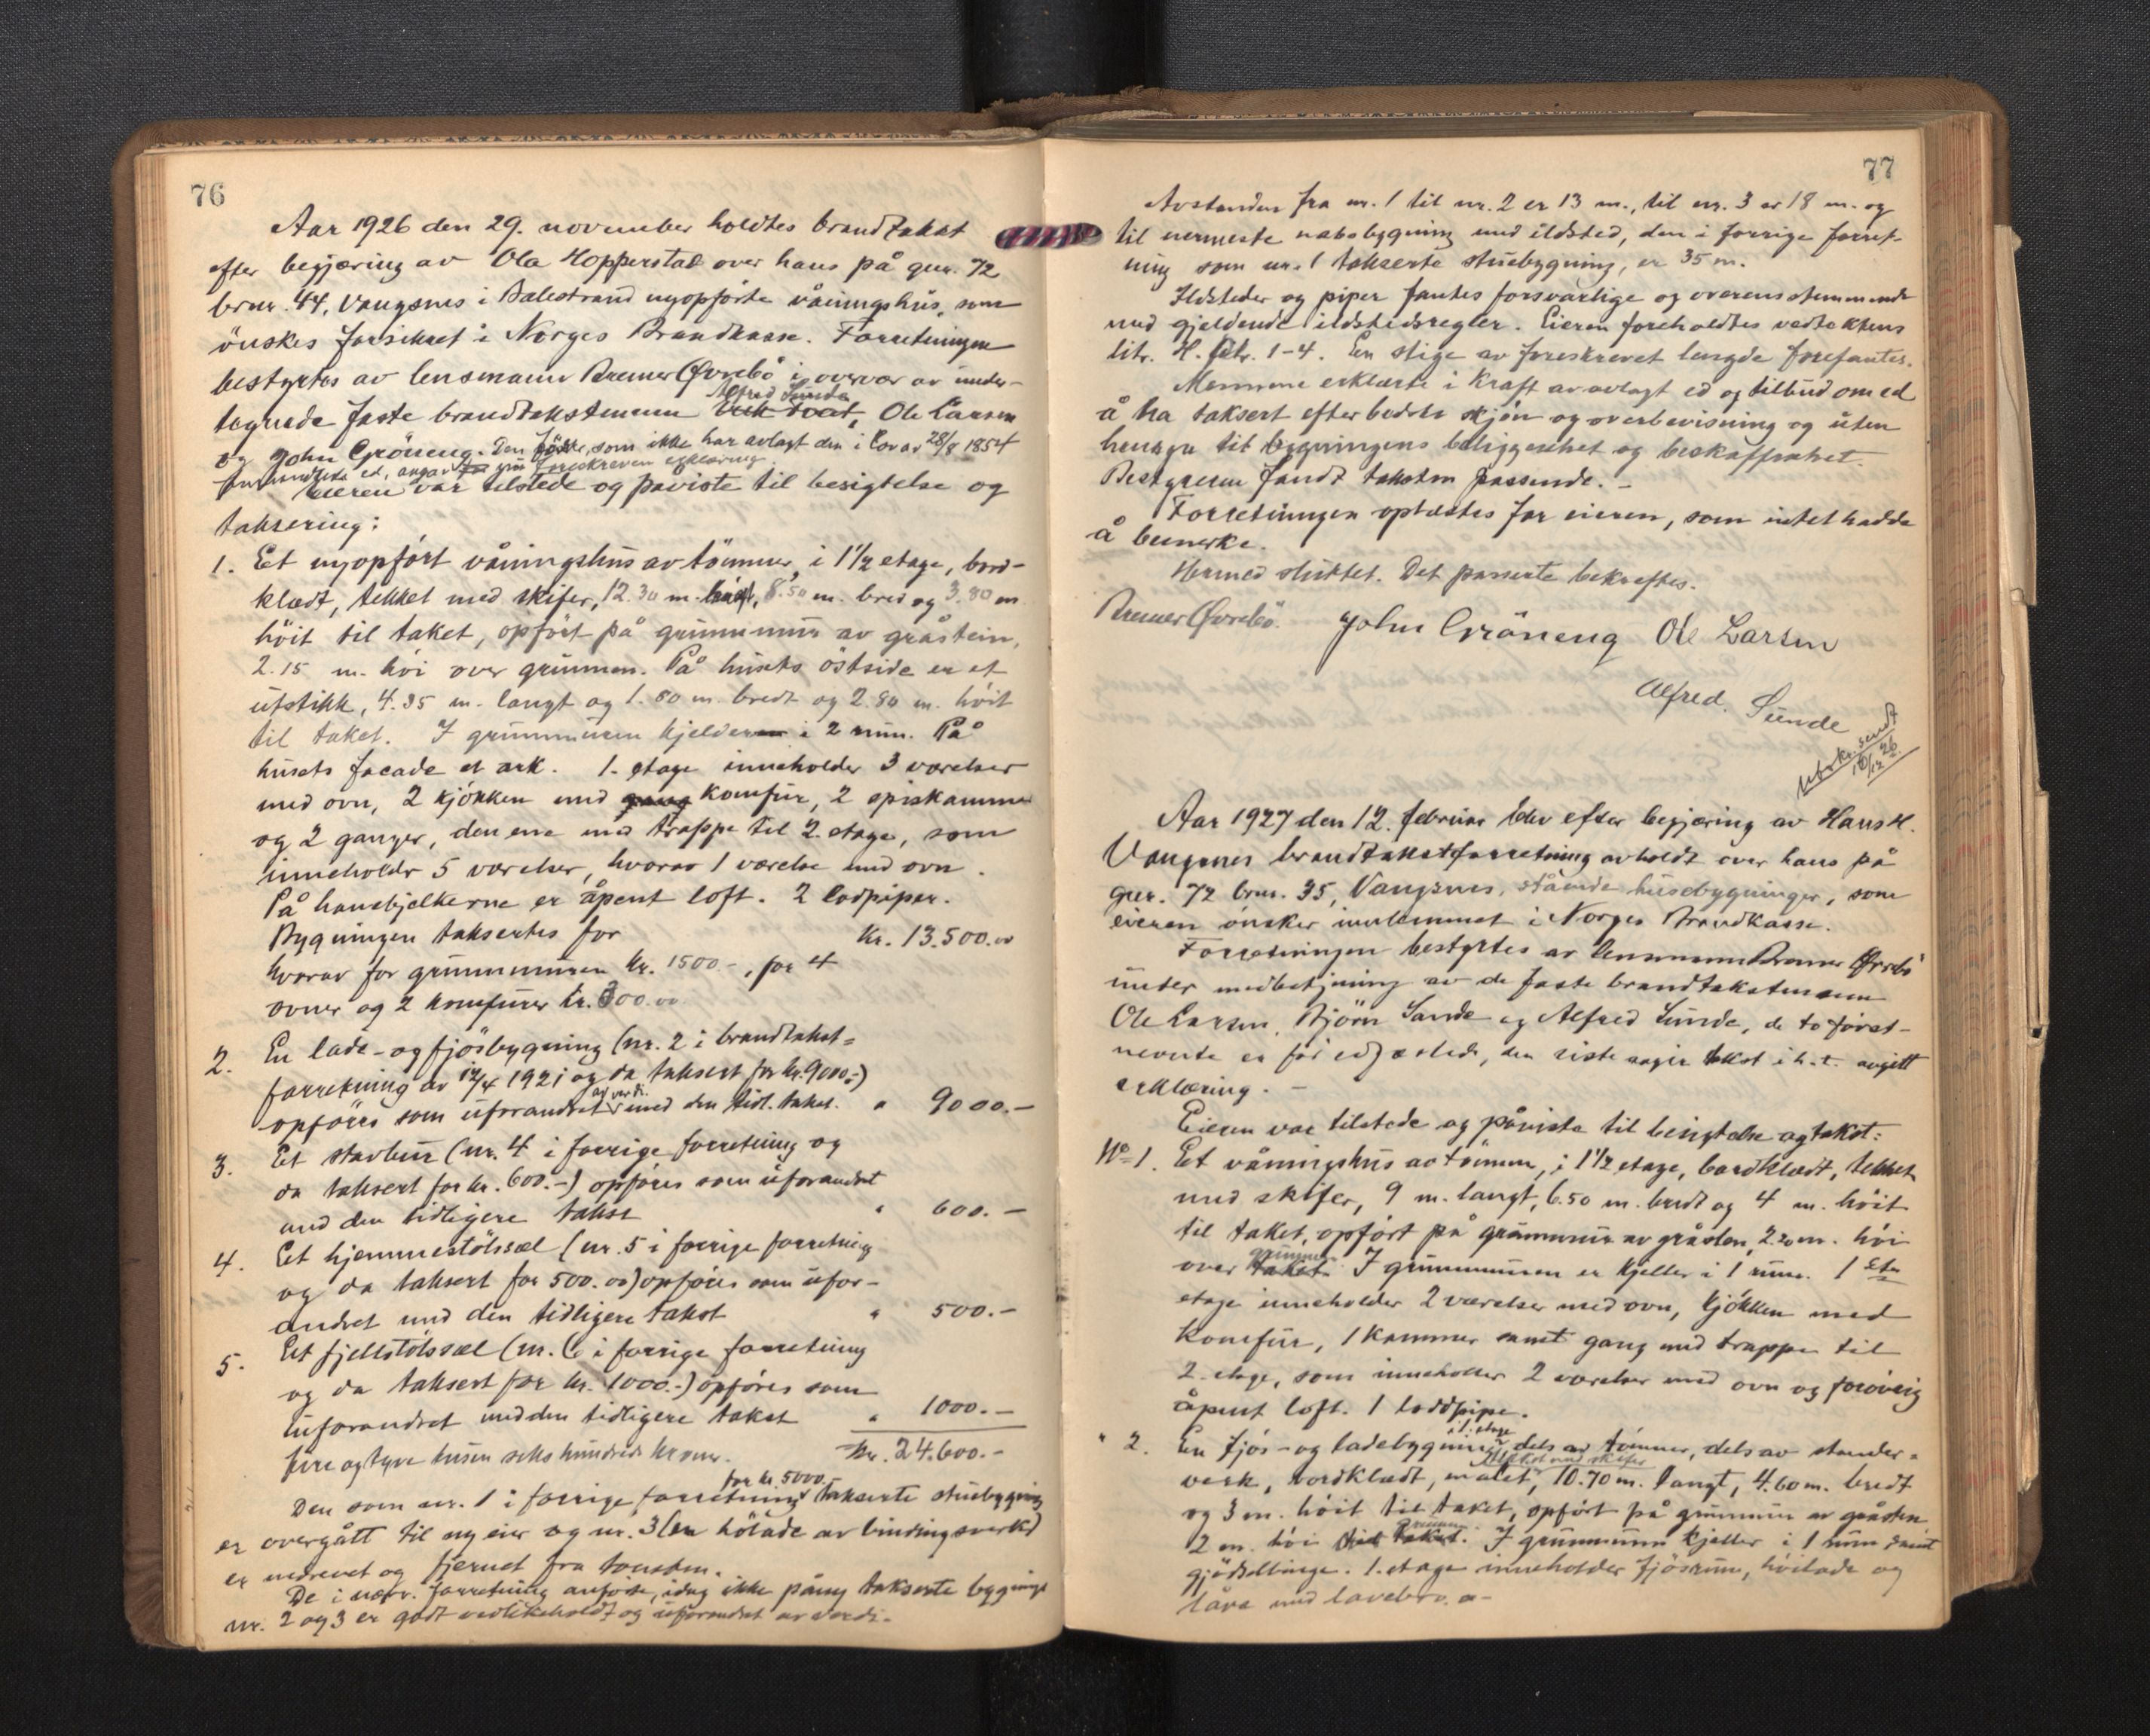 76
Aar 1926 den 29. november holdtes brandtakst
efter begjæring av Ola Hopperstad over hans på gnr. 72
brnr. 44, Vangsnes i Balestrand nyopförte våningshus, som
önskes forsikret i Norges Brandkasse. Forretningen
bestyrtes av lensmann Bremer Øvrebö i overvær av under-
Alfred Sunde
tegnede faste brandtakstmenn Ole Larsen
og John Gröneng. Den förste, som ikke har avlagt den i Lov av 28/8 1854
ed, avgav foreskreven erklæring
Eieren var tilstede og påviste til besigtelse og
taksering:
1. Et nyopfört våningshus av tömmer, i 1 1/2 etage, bord-
klædt, tekket med skifer, 12.30 m. langt, 8.50 m. bred og 3.80 m.
höit til taket, opfört på grunnmur av gråstein,
2.15 m. höi over grunnen. På husets östside er et
utstikk, 4.35 m. langt og 1.80 m. bredt og 2.80 m. höit
til taket. I grunnmuren kjelder i 2 rum. På
husets facade et ark. 1. etage inneholder 3 værelser
med ovn, 2 kjökken med gang komfur, 2 spiskammer
og 2 ganger, den ene med trappe til 2. etage, som
inneholdr 5 værelser, hvorav 1 værelse med ovn.
På hanebjelkerne er åpent loft. 2 lodpiper.
Bygningen taksertes for kr. 13.500.00
hvorav for grunnmuren kr. 1500.-, for 4
ovner og 2 komfurer kr. 300.00
2. En lade- og fjösbygning (nr. 2 i brandtakst-
forretning av 12/4 1921 og da taksert for kr. 9000.-)
av verdi
opföres som uforandret med den tidl. takst. " 9000.-
3. Et stavbur (nr. 4 i forrige forretning og
da taksert for kr. 600.-) opföres som uforandret
med den tidligere takst " 600.-
4. Et hjemmestölssel (nr. 5 i forrige forretning
og da taksert for 500.00) opföres som ufor-
andret med den tidligere takst " 500.-
5. Et fjellstölssel (nr. 6 i forrige forretning
og da taksert for kr. 1000.-) opföres som
uforandret med den tidligere takst " 1000.-
fire og tyve tusen seks hundrede kroner. kr. 24.600.-
for kr. 5000.-
Den som nr. 1 i forrige forretning takserte stuebygning
er overgått til ny eier og nr. 3 (en hölade av bindingsverk)
er nedrevet og fjernet fra tomten.
De i nærv. forretning anförte, idag ikke påny takserte bygninger
nr. 2 og 3 er godt vedlikeholdt og uforandret av verdi.
77
Avstanden fra nr. 1 til nr. 2 er 13 m., til nr. 3 er 18 m. og
til nermeste nabobygning med ildsted, den i forrige forret-
ning som nr. 1 takserte stuebygning, er 35 m.
Ildsteder og piper fantes forsvarlige og overensstemmende
med gjeldende ildstedsregler. Eieren foreholdtes vedtektens
litr. H. 1-4. En stige av foreskrevet lengde forefantes.
Mennene erklærte i kraft av avlagt ed og tilbud om ed
å ha taksert efter bedste skjön og overbevisning og uten
hensyn til bygningens beliggenhet og beskaffenhet.
Bestyreren fandt taksten passende. -
Forretningen oplæstes for eieren, som intet hadde
å bemerke.
Hermed sluttet. Det passerte bekreftes.
Bremer Øvrebö. John Gröneng Ole Larsen
Alfred. Sunde
Utskr. sendt
10/12 26
Aar 1927 den 12. februar blev efter begjæring av Hans H.
Vangsnes brandtakstforretning avholdt over hans på
gnr. 72 brnr. 35, Vangsnes, stående husebygninger, som
eieren önsker innlemmet i Norges Brandkasse.
Forretningen bestyrtes av lensmann Bremer Øvrebö
under medbetjening av de faste brandtakstmenn
Ole Larsen, Björn Sande og Alfred Sunde, de to först-
nevnte er för edfæstede, den siste avgir takst i h.t. avgitt
erklæring. -
Eieren var tilstede og påviste til besigtelse og takst:
No 1. Et våningshus av tömmer, i 1 1/2 etage, bordklædt, tekket
med skifer, 9 m. langt, 6.50 m. bredt og 4 m. höit
til taket, opfört på grunnmur av gråsten, 2.20 m. höi
grunnen
over taket. I grunnmuren er kjeller i 1 rum. 1ste
etage inneholder 2 værelser med ovn, kjökken med
komfur, 1 kammer samt gang med trappe til
2. etage, som inneholder 2 værelser med ovn og forövrig
åpent loft. 1 loddpipe.
i 1. etage
" 2. En fjös- og ladebygning, dels av tömmer, dels av stender-
tekket med skifer
verk, bordklædt, malet, 10.70 m. langt, 4.60 m. bredt
og 3 m. höit til taket, opfört på grunnmur av gråsten
grunnen
2 m. höi til taket. I grunnmuren kjeller i 1 rum samt
gjödselbinge. 1. etage inneholder fjösrum, höilade og
låve med lavebro. a-